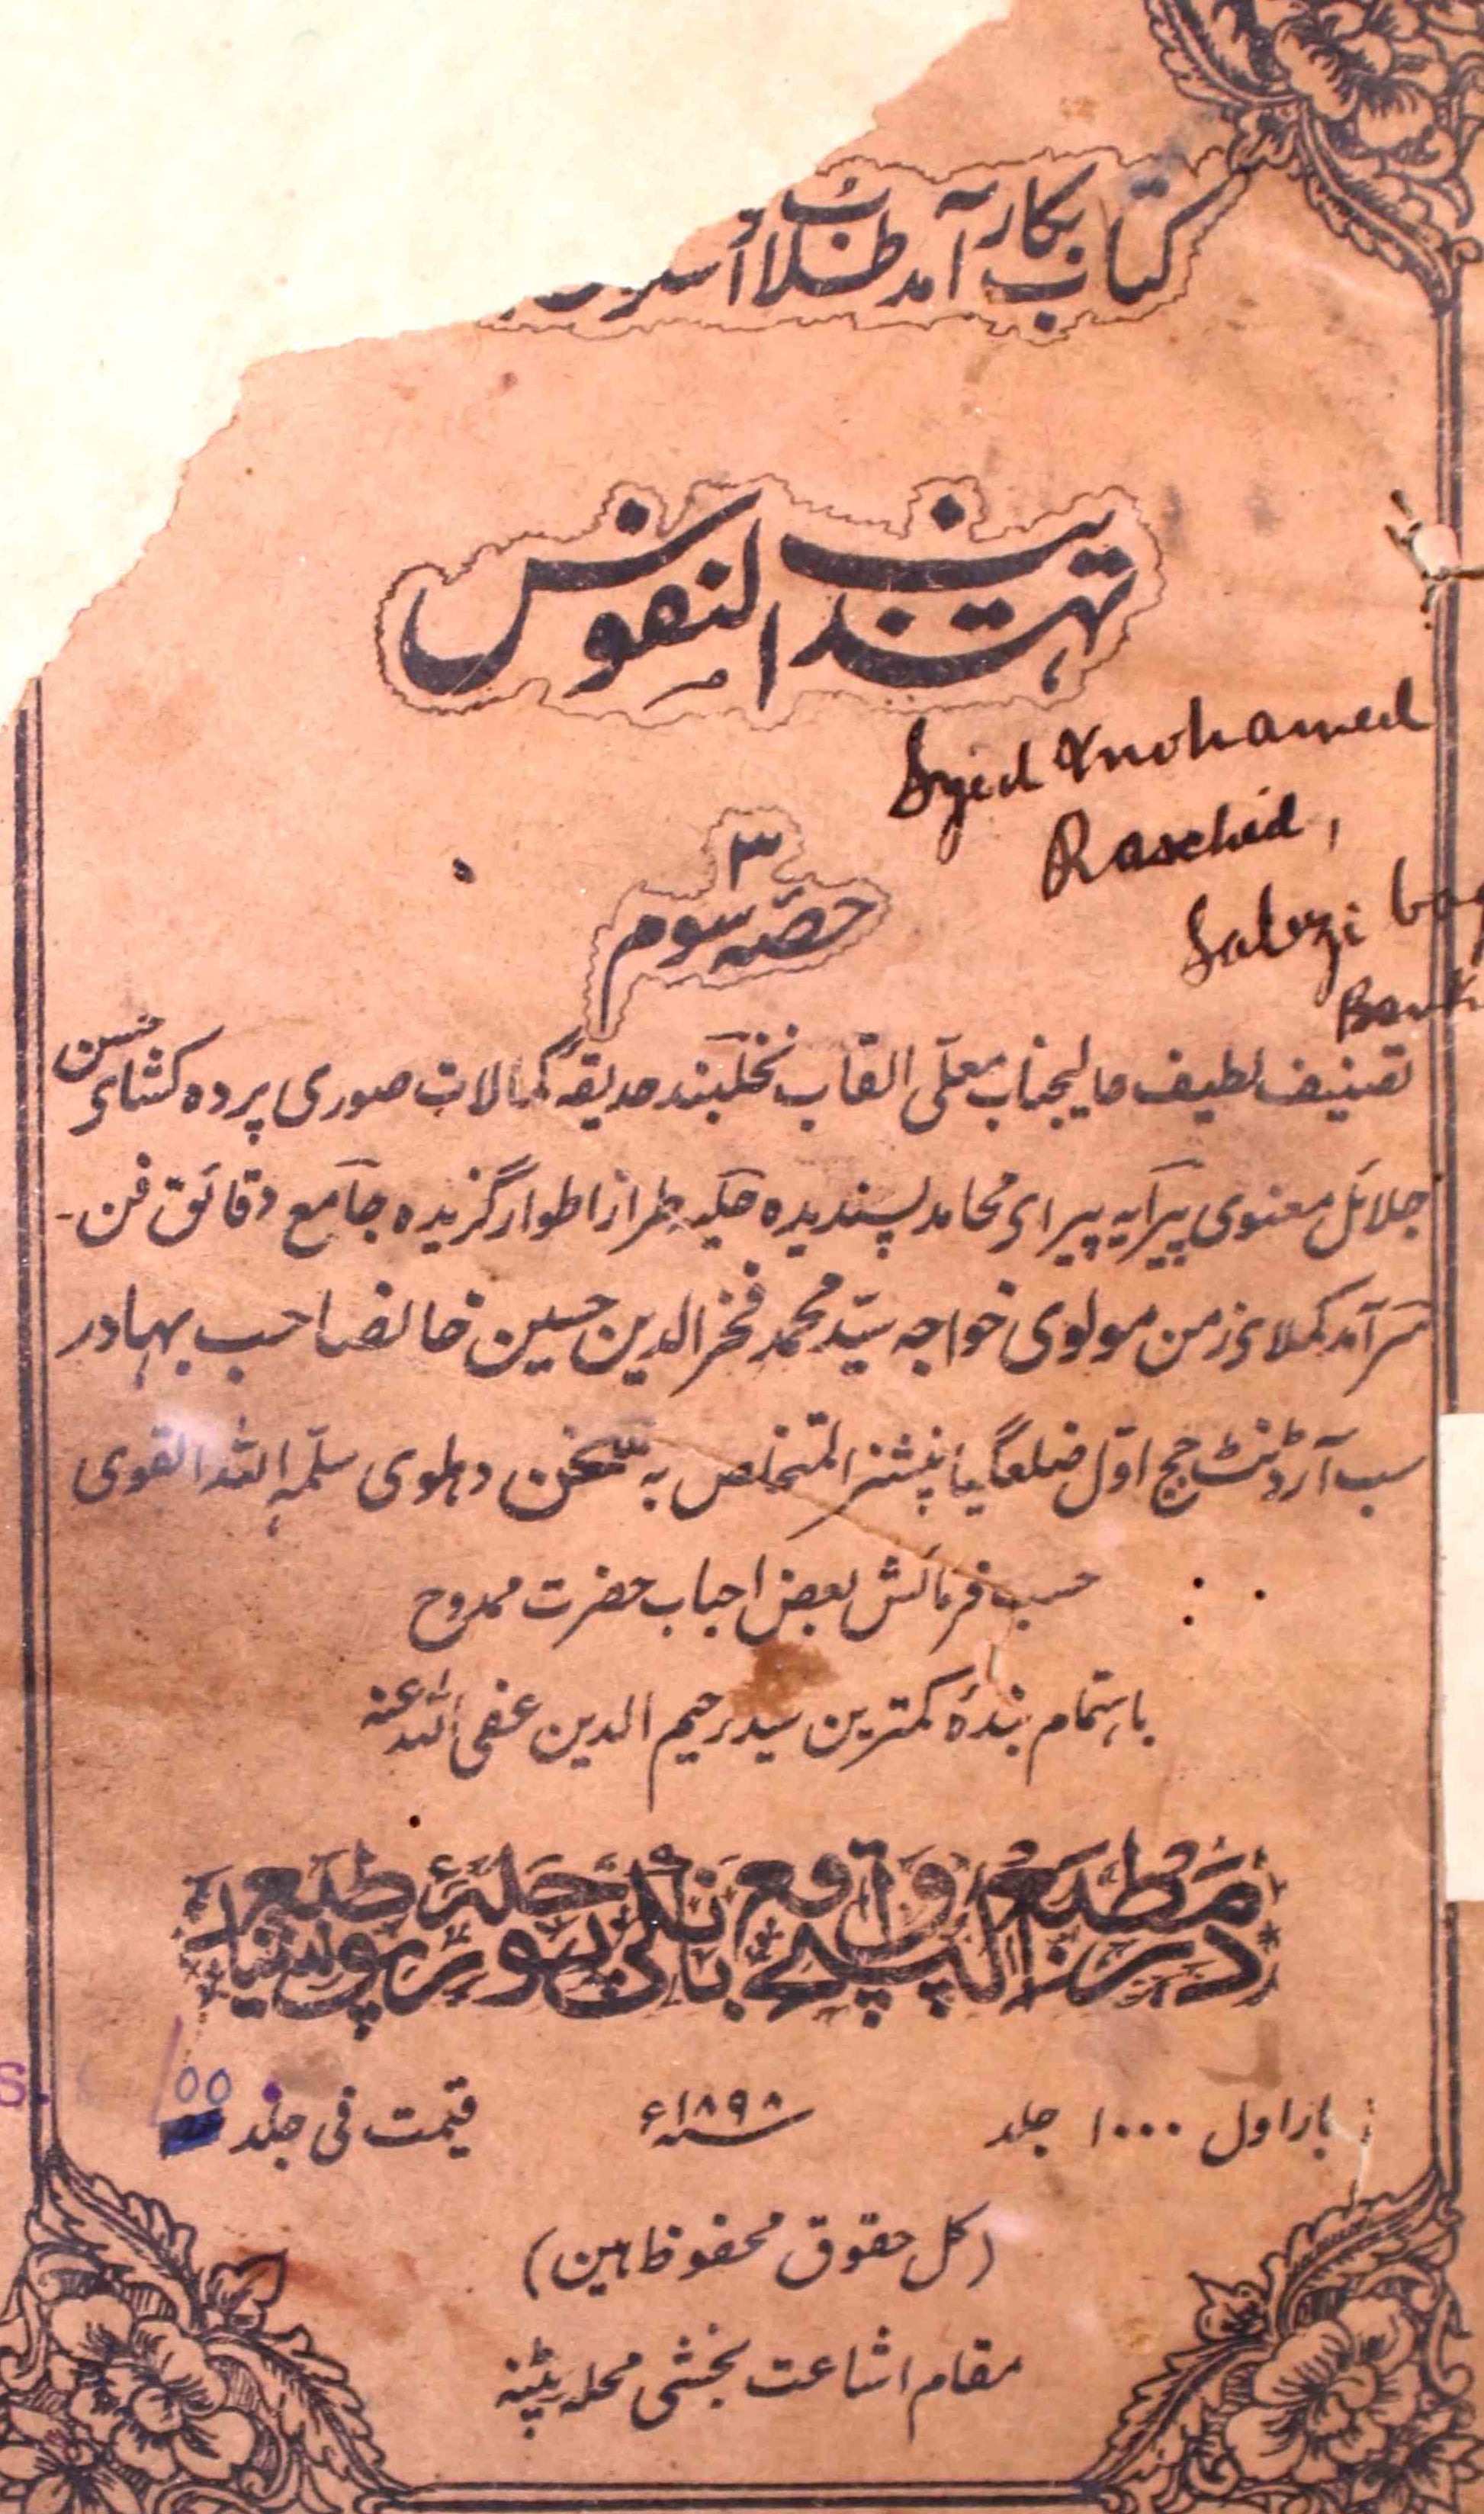 کتاب بکار آمد طلاب
تہذیب النفوس
Syed Mohamed
Raschid,
۳
حصہ سوم
Bank
تصنیف لطیف عالیجناب معلی القاب نخلبند حدیقۂ کمالات صوری پردہ کشای حسن
جلائل معنوی پیرایہ پیرای محامد پسندیدہ طراز اطوار گزیدہ جامع دقائق فن -
سرآمد کملای زمن مولوی خواجہ سید محمد فخر الدین حسین خانصاحب بہادر
سب آرڈنٹ جج اول ضلع گیا پنشنر المتخلص بہ سخن دہلوی سلمہ اللہ القوی
حسب فرمائش بعض احباب حضرت ممدوح
باہتمام بندۂ کمترین سید رحیم الدین عفی اللہ عنہ
در مطبع الپنچ واقع بانکی پور حلۂ طبع پوشید
بار اول ۱۰۰۰ جلد
سنہ ۱۸۹۸ء
قیمت فی جلد
/00
(کل حقوق محفوظ ہین)
مقام اشاعت بخشی محلہ پٹنہ